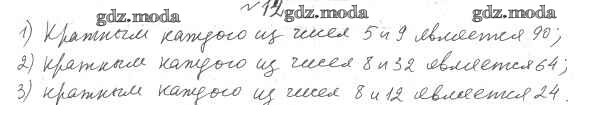 №12
gdz.moda gdz.moda gdz.moda
1) Кратным каждого из чисел 5 и 9 является 90;
2) кратным каждого из чисел 8 и 32 является 64;
3) кратным каждого из чисел 8 и 12 является 24.